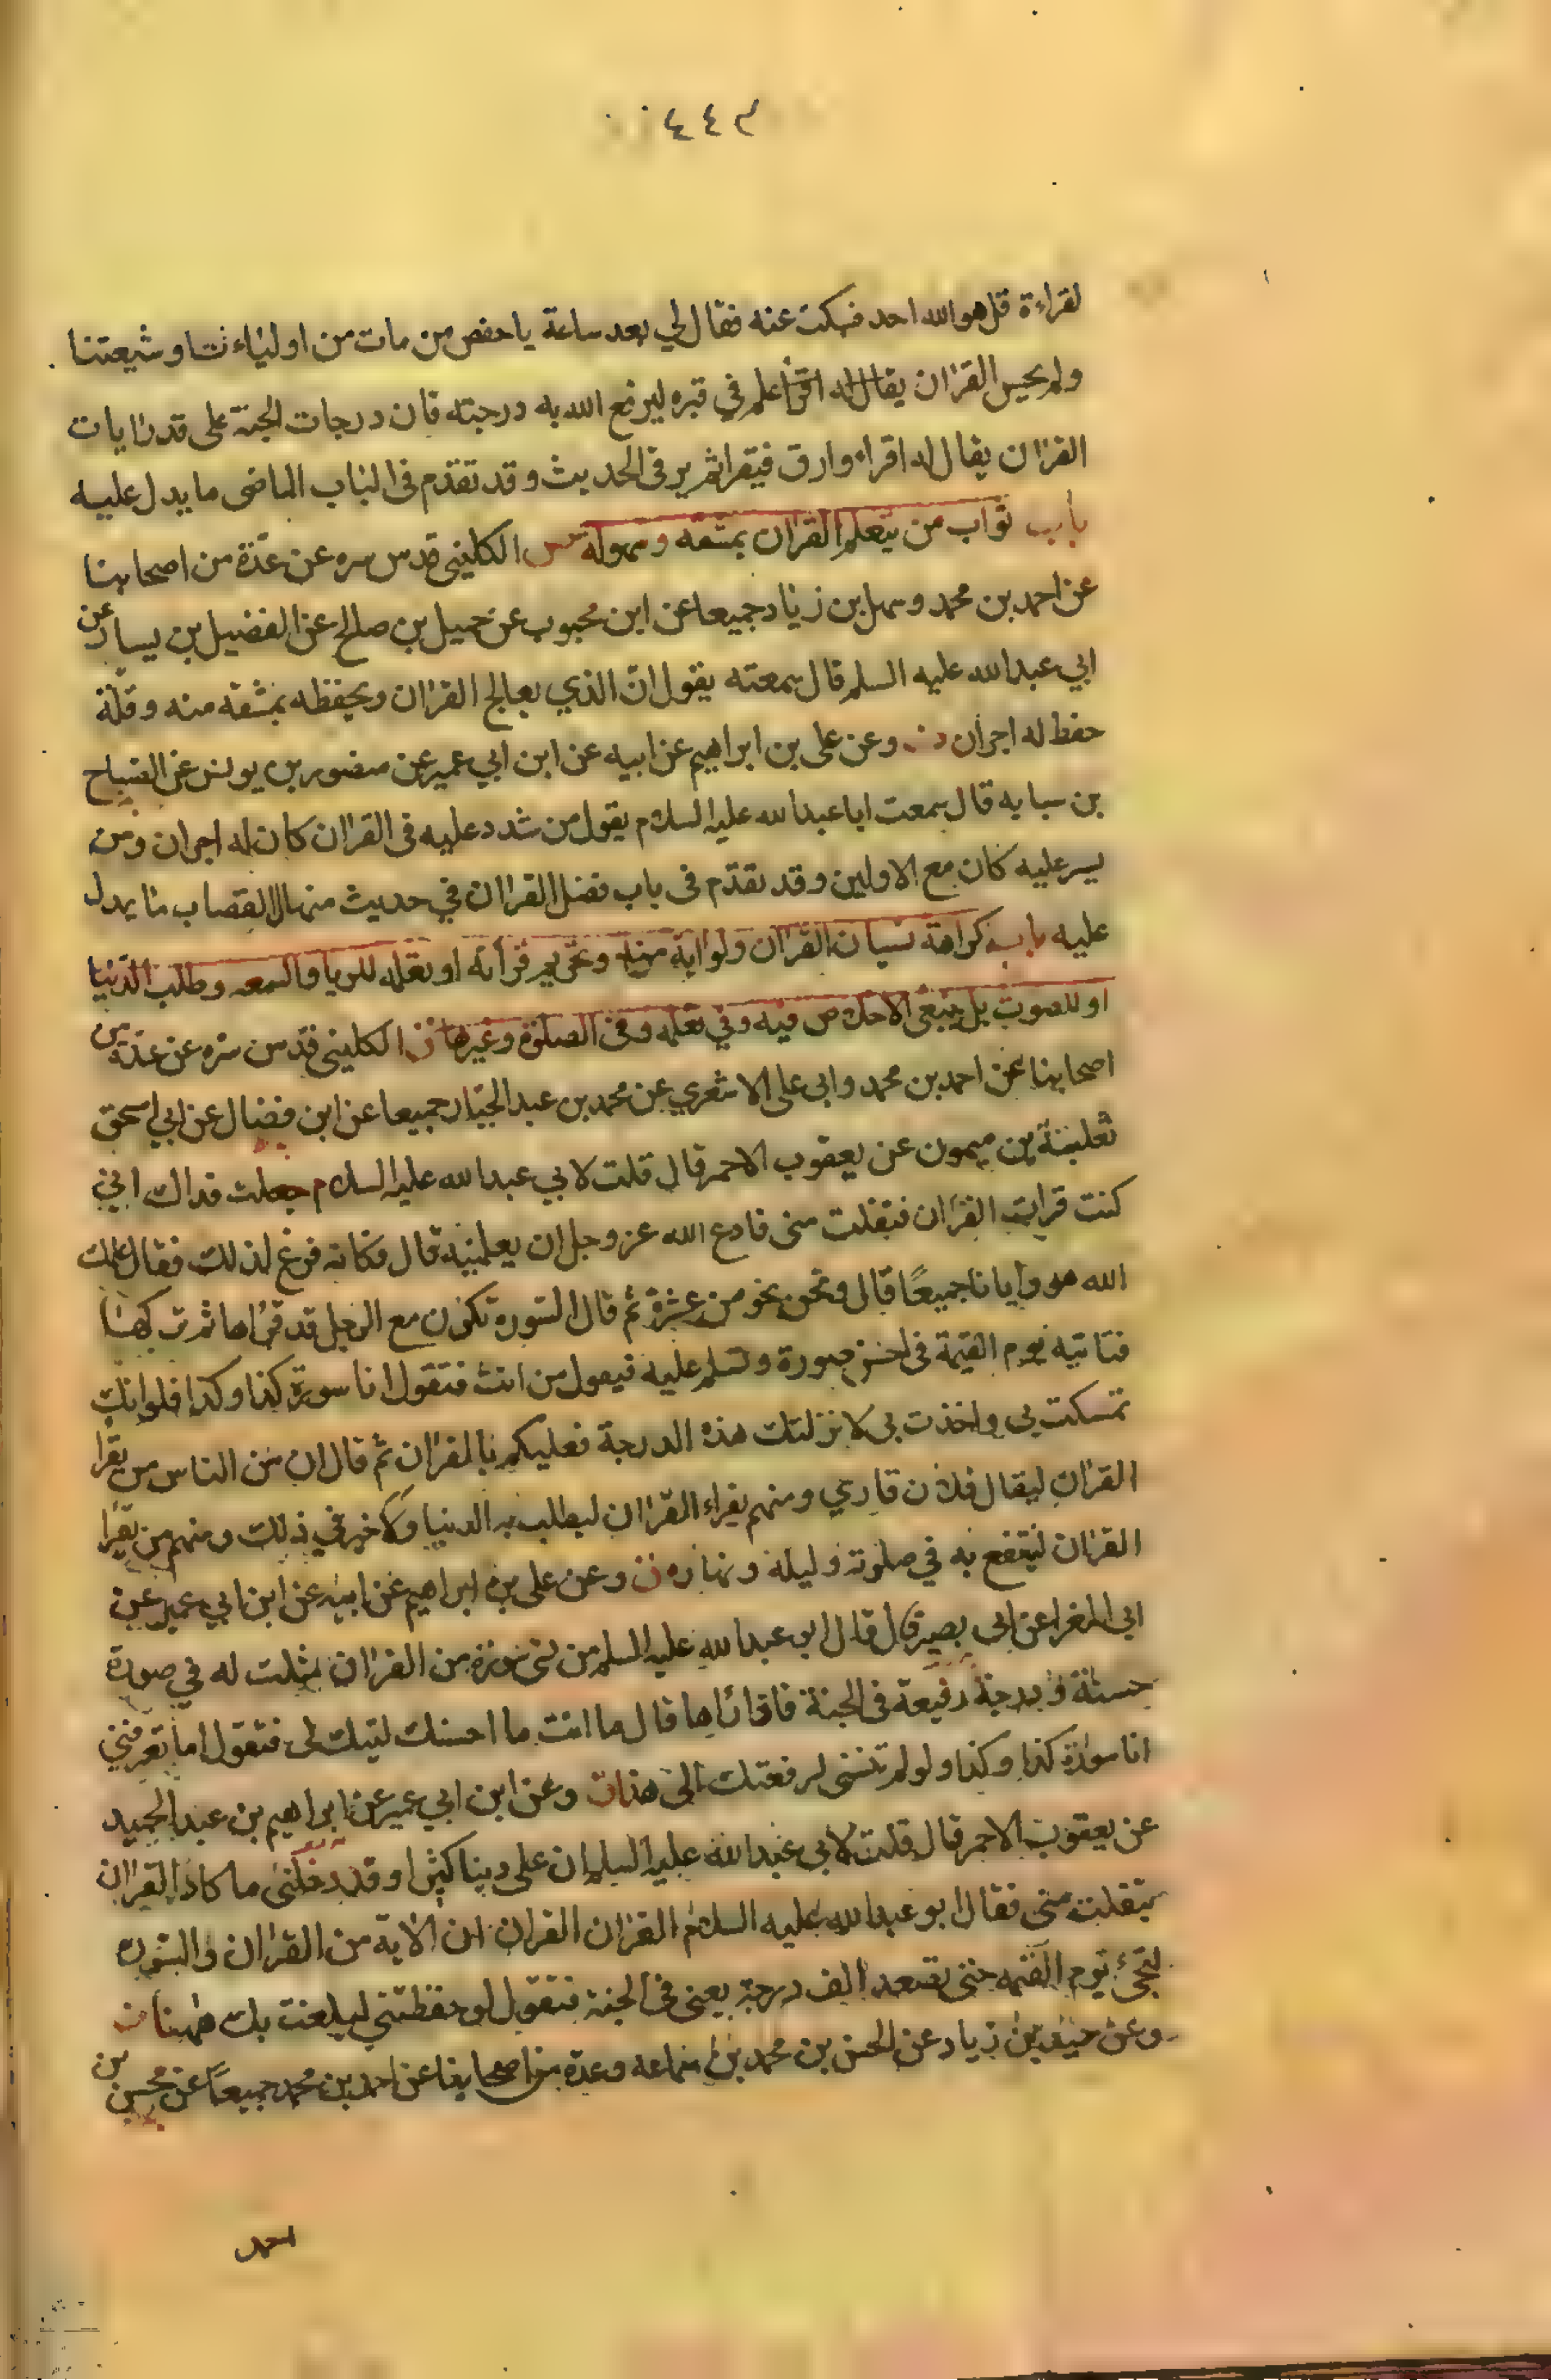 ٤٤٣
لقراءة قل هو الله احد فسكت عنه فقال لي بعد ساعة يا حفص من مات من اولياءنا و شيعتنا
ولم يحسن القران يقال له اقرأ علم في قبره ليرفع الله به درجته فان درجات الجنة على قدر ايات
القران يقال له اقراء وارق فيقرا ثم يرقى الحديث و قد تقدم فى الباب الماضى ما يدل عليه
باب ثواب من يتعلم القران بمشقه و سهوله الكلينى قدس سره عن عدة من اصحابنا
عن احمد بن محمد و سهل بن زياد جميعا عن ابن محبوب عن جميل بن صالح عن الفضيل بن يسار عن
ابي عبد الله عليه السلم قال سمعته يقول ان الذي يعالج القران ويحفظه بمشقه منه و قلة
حفظ له اجران وعن على بن ابراهيم عن ابيه عن ابن ابي عمير عن منصور بن يونس عن الصباح
بن سيابه قال سمعت ابا عبد الله عليه السلام يقول من شدد عليه فى القران كان له اجران ومن
يسر عليه كان مع الاولين و قد تقدم فى باب فضل القران في حديث منهال القصاب ما يدل
عليه باب كراهة نسيان القران ولو اية منه و تحريم قرأته او تعلمه للريا والسمعه و طلب الدنيا
او للصوت بل ينبغى الاخلاص فيه وفي تعلمه وفى الصلوة وغيرها الكلينى قدس سره عن عدة من
اصحابنا عن احمد بن محمد وابى على الاشعري عن محمد بن عبد الجبار جميعا عن ابن فضال عن ابي اسحق
ثعلبة بن ميمون عن يعقوب الاحمر قال قلت لابي عبد الله عليه السلام جعلت فداك اني
كنت قرات القران فتفلت منى فادع الله عز وجل ان يعلمنيه قال فكانه فزع لذلك فقال علمك
الله هو وايانا جميعًا قال ونحن نحو من عشرة ثم قال السورة تكون مع الرجل قد قراها ثم تركها
فتاتيه يوم القيمة فى احسن صورة وتسلم عليه فيقول من انت فتقول انا سورة كذا و كذا فلو انك
تمسكت بى واخذت بى لانزلتك هذه الدرجة فعليكم بالقران ثم قال ان من الناس من يقرا
القران ليقال فلان قاري ومنهم يقراء القران ليطلب به الدنيا ولا خير في ذلك ومنهم من يقرا
القران لينتفع به في صلوته وليله ونهاره وعن على بن ابراهيم عن ابيه عن ابن ابي عمير عن
ابى المغرا عن ابى بصير قال قال ابو عبد الله عليه السلم من نسى سورة من القران مثلت له في صورة
حسنة ودرجة رفيعة فى الجنة فاذا راها قال ما انت ما احسنك ليتك لى فتقول اما تعرفني
انا سورة كذا وكذا ولو لم تنسنى لرفعتك الى هذا وعن ابن ابي عمير عن ابراهيم بن عبد الحميد
عن يعقوب الاحمر قال قلت لابى عبد الله عليه السلم ان على دينا كثيرا و قد دخلنى ما كاد القران
يتفلت منى فقال ابو عبد الله عليه السلام القران القران ان الاية من القران والسورة
لتجئ يوم القيمه حتى تصعد الف درجة يعنى فى الجنة فتقول لو حفظتني لبلغت بك ههنا
وعن حميد بن زياد عن الحسن بن محمد بن سماعه وعدة من اصحابنا عن احمد بن محمد جميعًا عن محسن بن
احمد